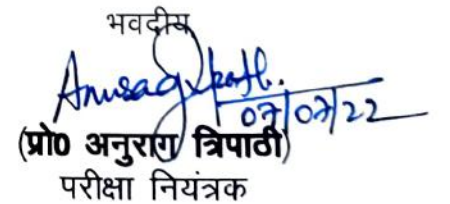 भवदीय
Anurag Tripathi.
07/07/22
(प्रो0 अनुराग त्रिपाठी)
परीक्षा नियंत्रक